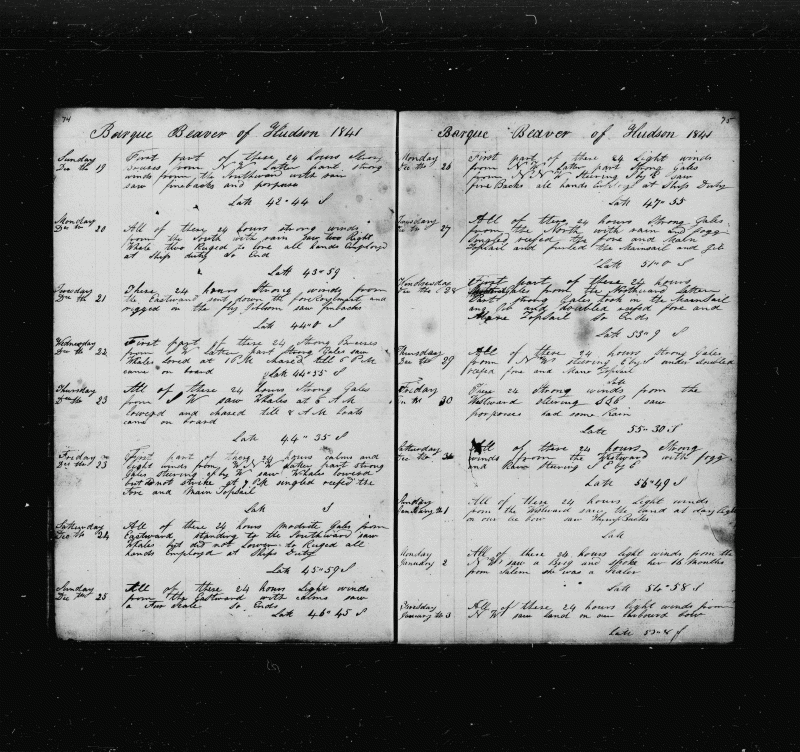 74
Barque Beaver of Hudson 1841
Sunday
Dec th 19
First part of these 24 hours Strong
from N W Latter part strong
winds from the Southward with rain
saw finbacks and porpose
Lat 42-44 S
Monday
Dec th 20
All of these 24 hours strong winds
from the South with rain saw two Right
Whale two Ruged to lore all hands Employd
at Ships duty So End
Lat 43-59
Tuesday
Dec th 21
These 24 hours Strong winds from
the Eastward sent down the foreRoylmast and
rigged in the flig Jibbom saw finbacks
Lat 44-0 S
Wednesday
Dec th 22
First part of these 24 Strong Breeses
from W latter part Strong Gales saw
Whales lored at 10 M chased till 6 P M
came on board
Lat 44-55 S
Thursday
Dec th 23
All of these 24 hours Strong Gales
from S W saw Whales at 6 A M
lowerd and chased till 8 A M boats
came on board
Lat 44-35 S
Friday
Dec th 23
First part of these 24 hours calms and
light winds from W N W Latter part strong
Gales Stering S by W saw Whales lowerd
but did not strike at 7 P M singled reefed the
Fore and Main TopSail
Lat S
Sathurday
Dec th 24
All of these 24 hours modrite Gales from
Eastward standing to the Southward saw
Whales but did not Lower to Ruged all
hands Employd at Ships Duty
Lat 45-59 S
Sunday
Dec th 25
All of these 24 hours Light winds
from the Eastward with calms saw
a Fur Seale So Ends
Lat 46-45 S
75
Barque Beaver of Hudson 1841
Monday
Dec th 26
First part of these 24 Light winds
from N N W latter part Strong Gales
from N N W Stering S by E saw
fine Backs all hands at Ships Duty
Lat 47-55
Tuesday
Dec th 27
All of these 24 hours Strong Gales
from the North with rain and fogg
singled reefed the Fore and Main
TopSail and furled the Mainsail and Jib
Lat 51-0 S
Wendsday
Dec th 28
First part of these 24 hours
Gales from the Northward Latter
Part Strong Gales took in the MainSail
and Jib and doubled reefed fore and
Mane TopSail So Ends
Lat 53-9 S
Thursday
Dec th 29
All of these 24 hours Strong Gales
from N N W stering S by E under doubled
reefed fore and Mane Topsail
Lat
Friday
Dec th 30
These 24 Strong winds from the
Westward steering SSE saw
porposes had some Rain
Late 55-30 S
Sathurday
Dec th
All of these 24 hours Strong
winds from the Westward with fogg
and Rain Stering S E by E
Late 56-49 S
Sunday
January 1
All of these 24 hours Light winds
from the Westward saw the land at day light
on our lee bow saw Backs
Late
Monday
January 2
All of these 24 hours light winds from the
N W saw a Brig and spoke her 16 Months
from Salem she was a Sealer
Late 54-58 S
Tuesday
January th 3
All of these 24 hours light winds from
N W saw land on our larbourd bow
Late